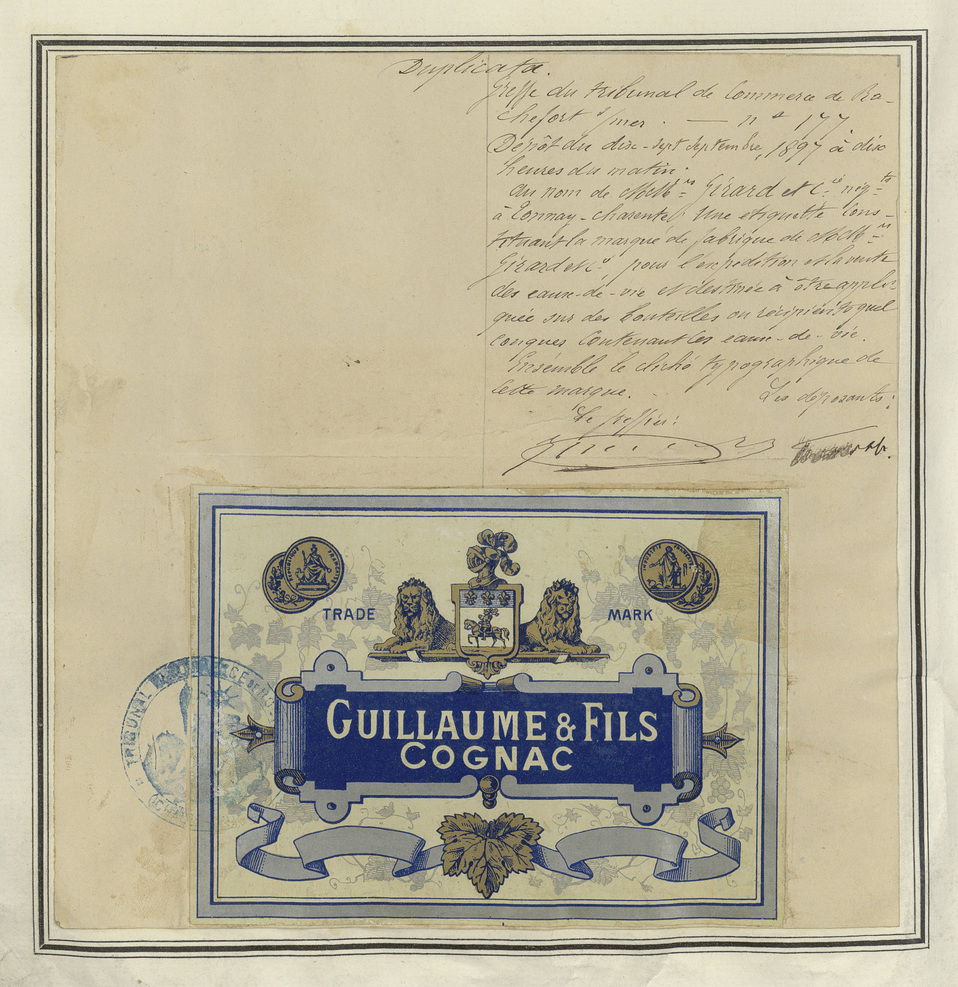 Duplicata.
Greffe du tribunal de Commerce de Ro-
chefort s/mer. — nº 177
Dépôt du dix-sept Septembre, 1897 à dix
heures du matin.
Au nom de MM.rs Girard et Cie nég.ts
à Tonnay-Charente, Une etiquette Cons-
tituant la marque de fabrique de MM.rs
Girard et Cie, pour l'expédition et la vente
des eaux-de-vie et destinée à être appli-
quée sur des bouteilles ou récipients quel
conques Contenant les eaux-de-vie.
Ensemble le cliché typographique de
cette marque.
Les déposants:
Le greffier:
TRADE MARK
GUILLAUME & FILS
COGNAC
TRIBUNAL